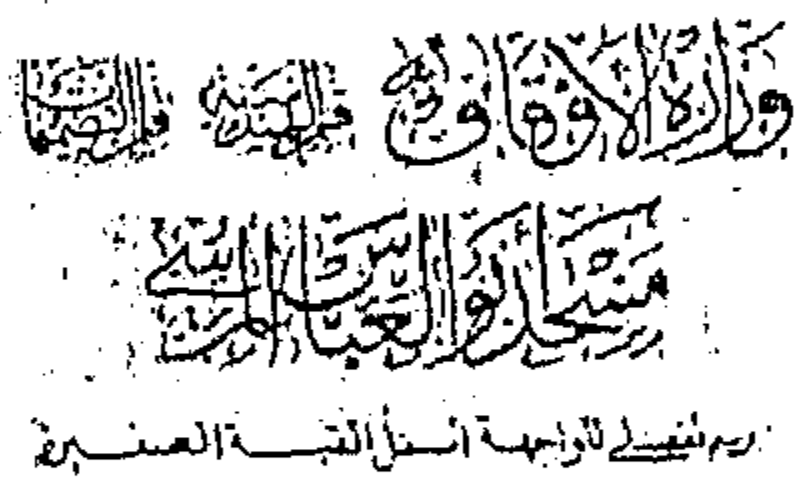 وزارة الأوقاف قسم الهندسة قسم التصميمات
مسجد أبو العباس المرسي
رسم تفصيلي للواجهة أسفل القبة الصغيرة